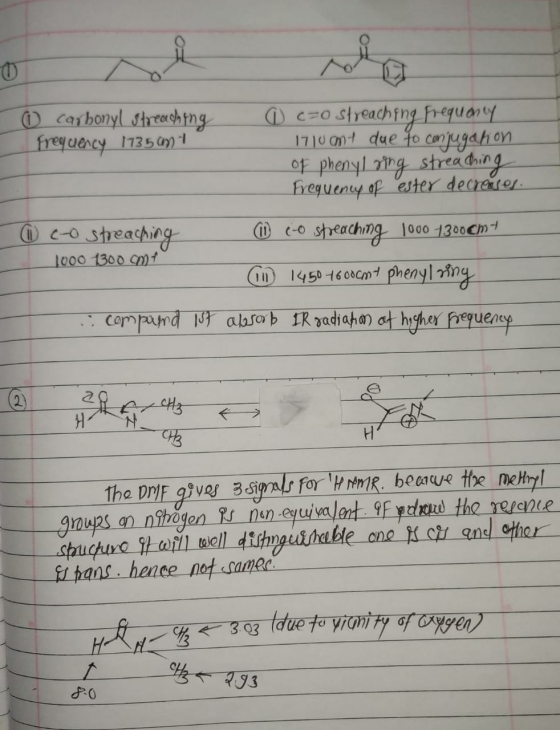 ①
O
O
O
O
(i) carbonyl streaching
Frequency 1735cm-1
(i) c=o streaching Frequency
1710cm-1 due to conjugation
of phenyl ring streaching
Frequency of ester decreases.
(ii) c-o streaching
1000-1300 cm-1
(ii) c-o streaching 1000-1300cm-1
(iii) 1450-1600cm-1 phenyl ring
∴ compound 1st absorb IR radiation at higher frequency
②
O
H N CH3
CH3
↔
O ⊖
N ⊕
H
The DMF gives 3 signals for 1H NMR. because the methyl
groups on nitrogen is non equivalent. If draw the resonce
structure it will well distinguishable one is cis and other
is trans. hence not sames.
O
H N CH3 ← 3.03 (due to vicinity of oxygen)
CH3 ← 2.93
8.0